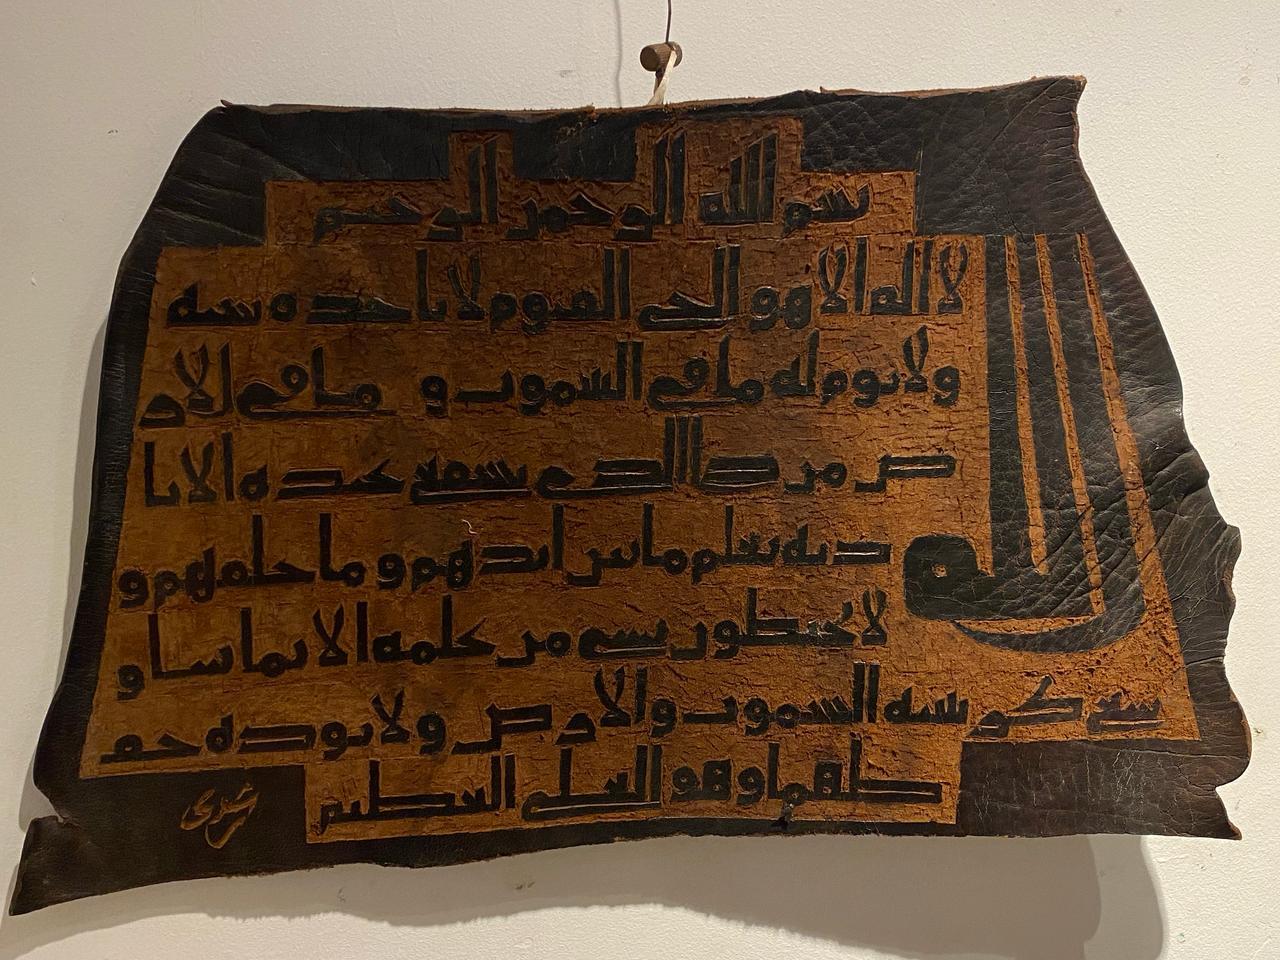 بسم الله الرحمن الرحيم
الله
لا اله الا هو الحي القيوم لا تاخذه سنه
ولا نوم له ما في السموت و ما في الار
ض من ذا الذي يشفع عنده الا با
ذنه يعلم ما بين ايديهم و ما خلفهم و
لا يحيطون بشي من علمه الا بما شا و
سع كرسيه السموت والارض ولا يوده حف
ظهما وهو العلي العظيم